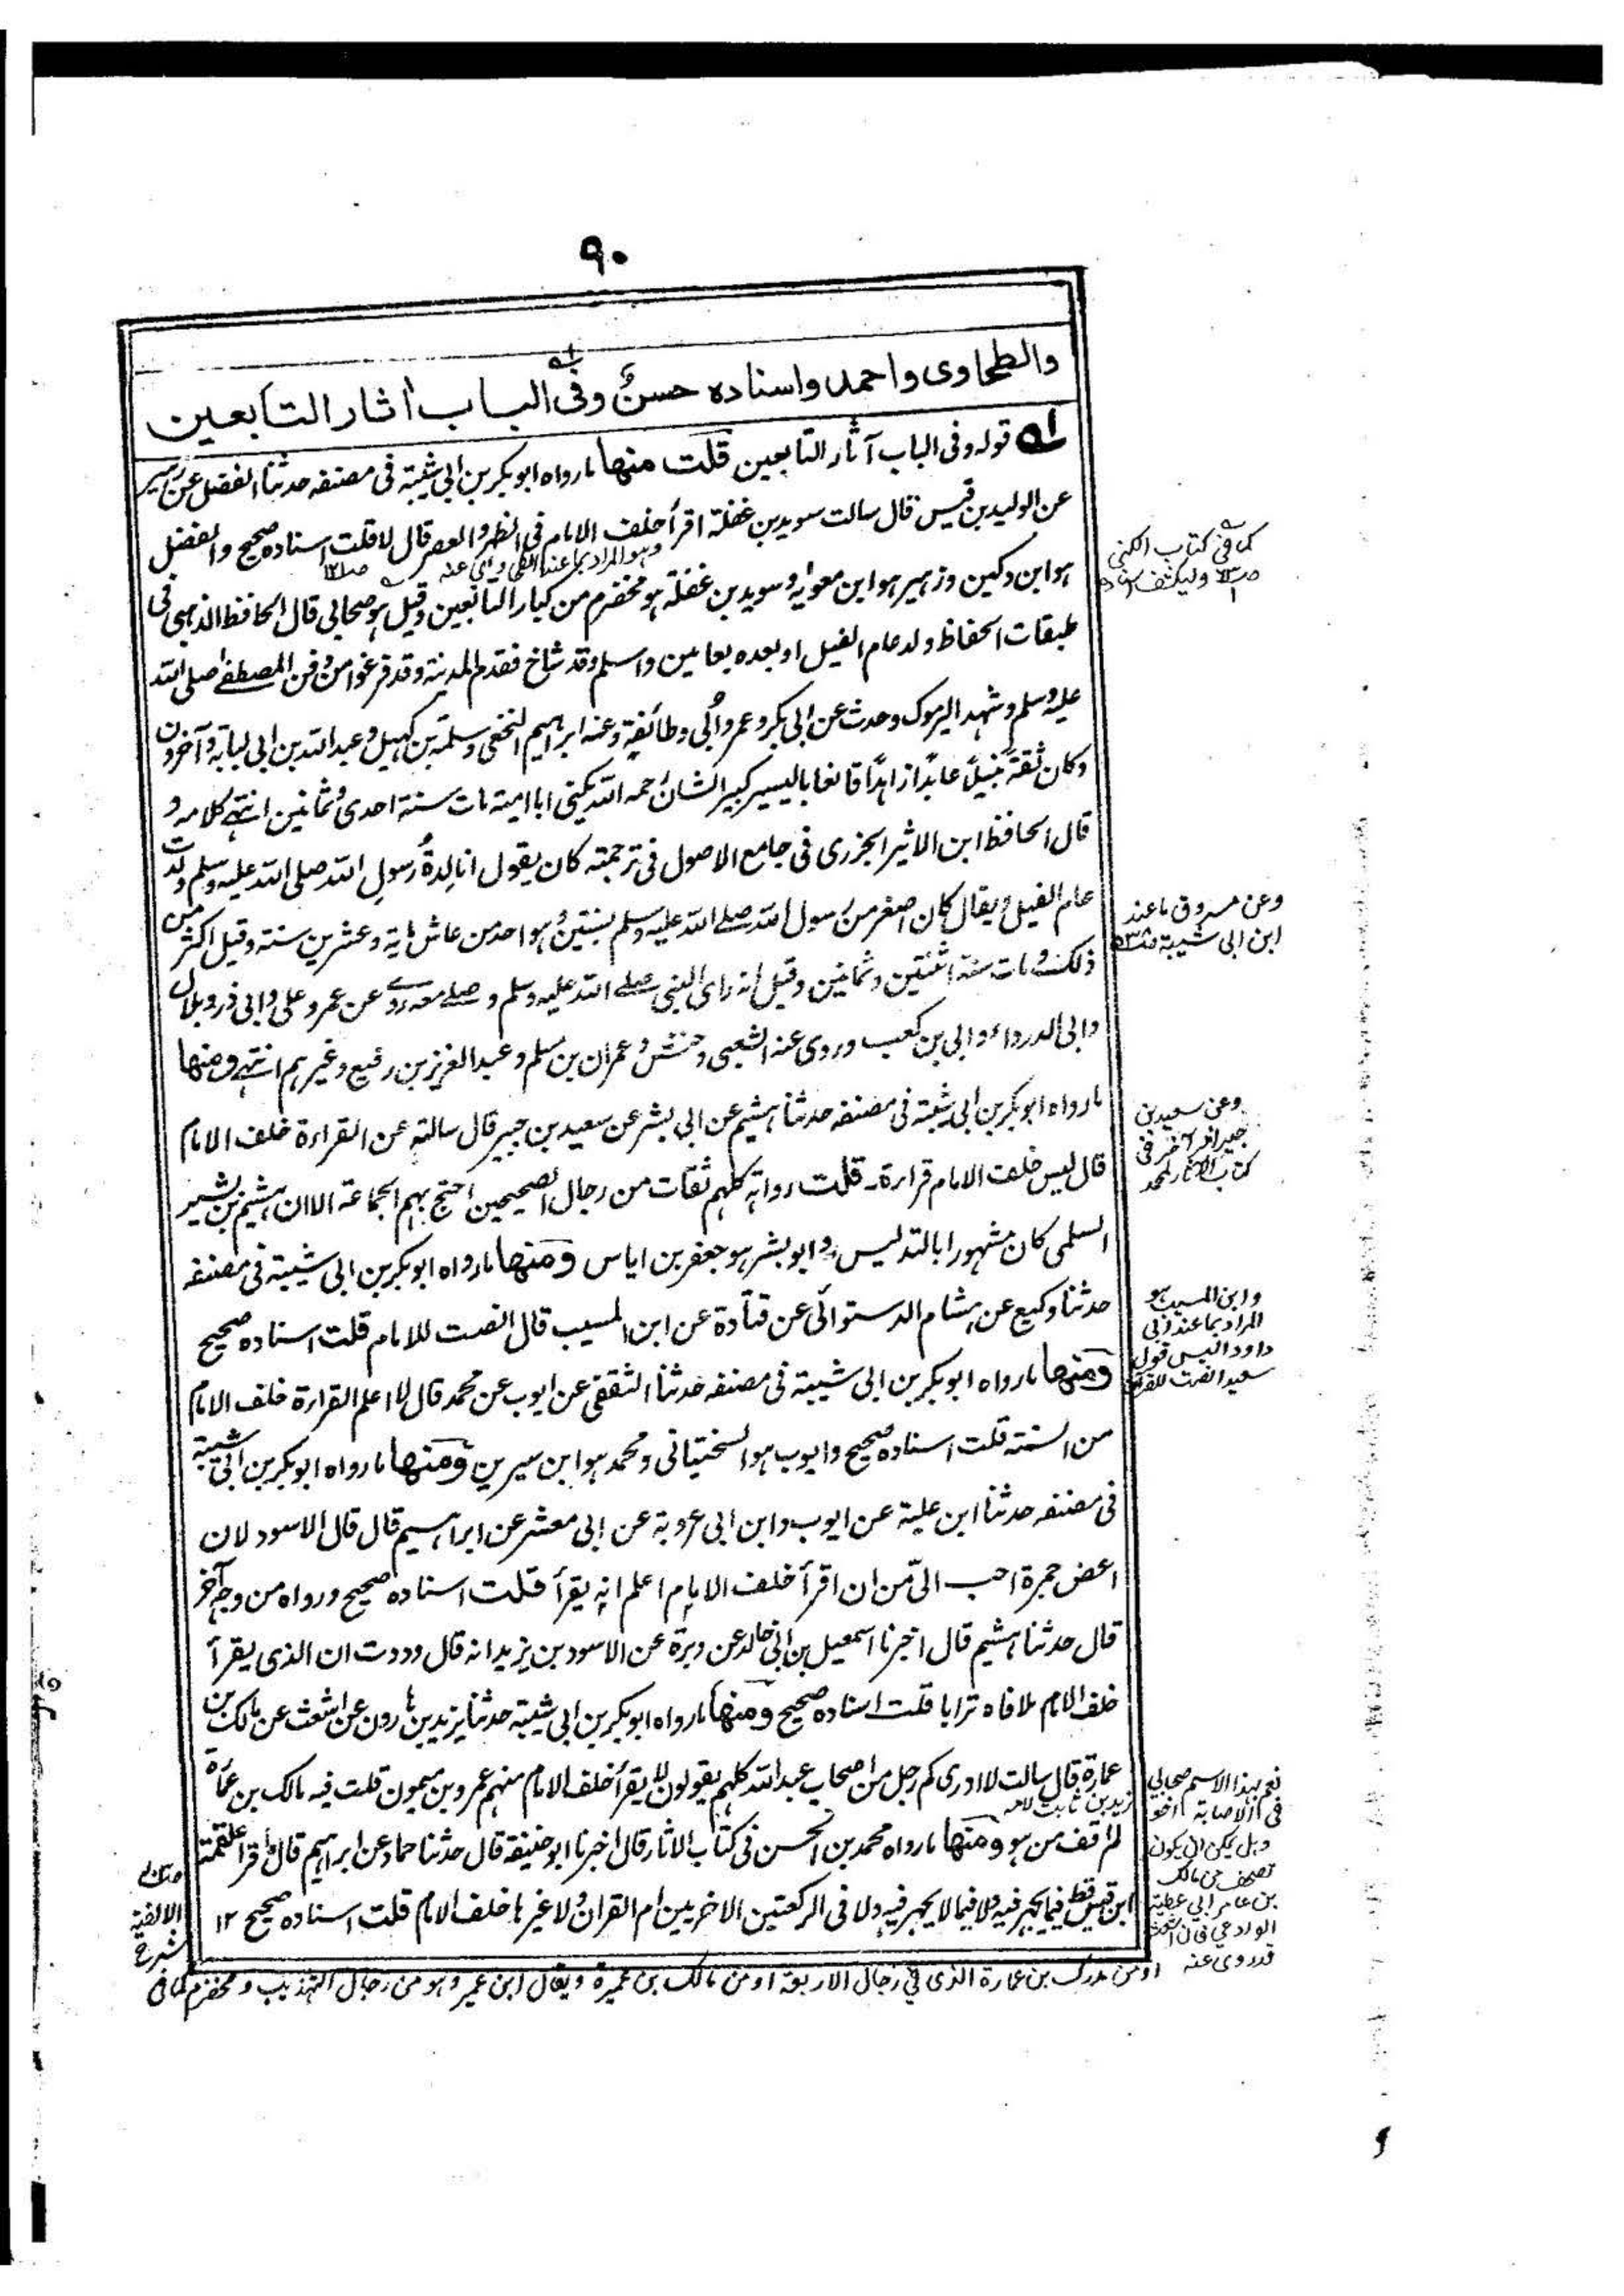 ٩٠
والطحاوى واحمد واسناده حسن وفى الباب اثار التابعين
قوله وفى الباب آثار التابعين قلت منها ما رواه ابوبكر بن ابى شيبة فى مصنفه حدثنا الفضل عن زهير
عن الوليد بن قيس قال سالت سويد بن غفلة اقرأ خلف الامام فى الظهر والعصر قال لا قلت اسناده صحيح والفضل
هو ابن دكين وزهير هو ابن معوية وسويد بن غفلة هو مخضرم من كبار التابعين وقيل هو صحابى قال الحافظ الذهبى فى
طبقات الحفاظ ولد عام الفيل او بعده بعامين واسلم وقد شاخ فقدم المدينة وقد فرغوا من دفن المصطفى صلى الله
عليه وسلم وشهد اليرموك وحدث عن ابى بكر وعمر وأبى وطائفة وعنه ابراهيم النخعى وسلمة بن كهيل وعبد الله بن ابى لبابة وآخرون
وكان ثقة نبيلاً عابدًا زاهدًا قانعا باليسير كبير الشان رحمه الله يكنى ابا امية مات سنة احدى وثمانين انتهى كلامه و
قال الحافظ ابن الاثير الجزرى فى جامع الاصول فى ترجمته كان يقول انا لدة رسول الله صلى الله عليه وسلم ولدت
عام الفيل ويقال كان اصغر من رسول الله صلى الله عليه وسلم بسنتين وهو احد من عاش ماية وعشرين سنة وقيل اكثر من
ذلك ومات سنة اثنتين وثمانين وقيل انه راى النبى صلى الله عليه وسلم وصلى معه روى عن عمر وعلى وابى ذر وبلال
وابى الدرداء وابى بن كعب وروى عنه الشعبى وخنش وعمران بن مسلم وعبد العزيز بن رفيع وغيرهم انتهى ومنها
ما رواه ابوبكر بن ابى شيبة فى مصنفه حدثنا هشيم عن ابى بشر عن سعيد بن جبير قال سالته عن القراءة خلف الامام
قال ليس خلف الامام قراءة۔ قلت رواته كلهم ثقات من رجال الصحيحين احتج بهم الجماعة الا ان هشيم بن بشير
السلمى كان مشهورا بالتدليس، وابو بشر هو جعفر بن اياس ومنها ما رواه ابوبكر بن ابى شيبة فى مصنفه
حدثنا وكيع عن هشام الدستوائى عن قتادة عن ابن المسيب قال انصت للامام قلت اسناده صحيح
ومنها ما رواه ابوبكر بن ابى شيبة فى مصنفه حدثنا الثقفى عن ايوب عن محمد قال لا اعلم القراءة خلف الامام
من السنة قلت اسناده صحيح وايوب هو السختيانى ومحمد هو ابن سيرين ومنها ما رواه ابوبكر بن ابى شيبة
فى مصنفه حدثنا ابن علية عن ايوب وابن ابى عروبة عن ابى معشر عن ابراهيم قال قال الاسود لان
اعض جمرة احب الىّ من ان اقرأ خلف الامام اعلم انه يقرأ قلت اسناده صحيح ورواه من وجه آخر
قال حدثنا هشيم قال اخبرنا اسمعيل بن ابى خالد عن وبرة عن الاسود بن يزيد انه قال وددت ان الذى يقرأ
خلف الامام ملا فاه ترابا قلت اسناده صحيح ومنها ما رواه ابوبكر بن ابى شيبة حدثنا يزيد بن هارون عن اشعث عن مالك بن
عمارة قال سالت لا ادرى كم رجل من اصحاب عبد الله كلهم يقولون لا يقرأ خلف الامام منهم عمرو بن ميمون قلت فيه مالك بن عمارة
لم اقف من هو ومنها ما رواه محمد بن الحسن فى كتاب الاثار قال اخبرنا ابو حنيفة قال حدثنا حماد عن ابراهيم قال ما قرأ علقمة
ابن قيس قط فيما يجهر فيه ولا فيما لا يجهر فيه ولا فى الركعتين الاخريين ام القران ولا غيرها خلف الامام قلت اسناده صحيح ١٢
كما فى كتاب الكنى
وعن مسروق ما عند
ابن ابى شيبة
وعن سعيد بن
جبير اثر آخر فى
كتاب الآثار لمحمد
وابن المسيب هو
المراد بما عند ابى
داود اليس قول
سعيد انصت للقرآن
نعم بهذا الاسم صحابى
فى الاصابة اخو
زيد بن ثابت لامه
وهل يمكن ان يكون
تصحف من مالك
بن عامر ابى عطية
الوادعى فان اشعث
قد روى عنه
او من مدرك بن عمارة الذى فى رجال الاربعة او من مالك بن عميرة ويقال ابن عمير وهو من رجال التهذيب ومخضرم كما فى
شرح
الالفية